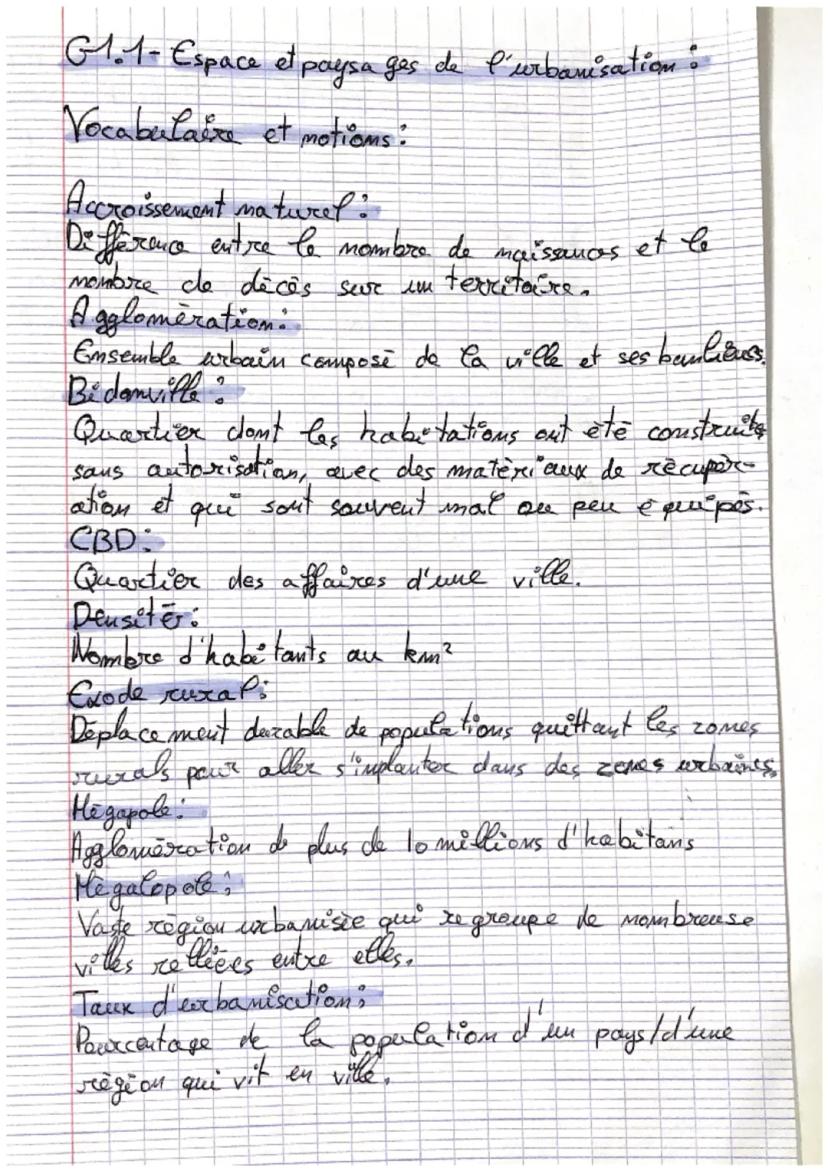 G1.1- Espace et paysages de l'urbanisation :
Vocabulaire et notions :
Accroissement naturel :
Différence entre le nombre de naissances et le
nombre de décès sur un territoire.
Agglomération :
Ensemble urbain composé de la ville et ses banlieues.
Bidonville :
Quartier dont les habitations ont été construite
sans autorisation, avec des matériaux de récupér-
ation et qui sont souvent mal ou peu équipés.
CBD :
Quartier des affaires d'une ville.
Densitér :
Nombre d'habitants au km²
Exode rural :
Déplacement durable de populations quittant les zones
rurals pour aller s'implanter dans des zones urbaines.
Mégapole :
Agglomération de plus de 10 millions d'habitans
Mégalopole :
Vaste région urbanisée qui regroupe de nombreuse
villes relléées entre elles.
Taux d'urbanisation :
Pourcentage de la population d'un pays/d'une
région qui vit en ville.